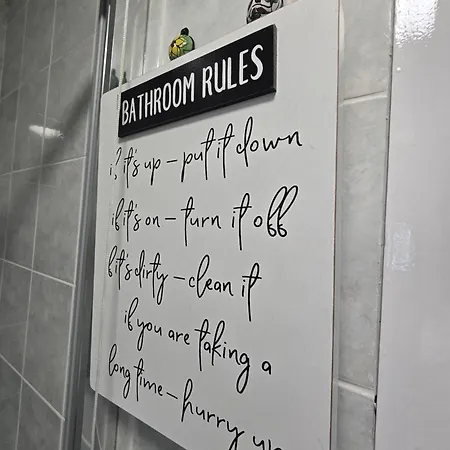 BATHROOM RULES
if it's up – put it down
if it's on – turn it off
if it's dirty – clean it
if you are taking a
long time – hurry up